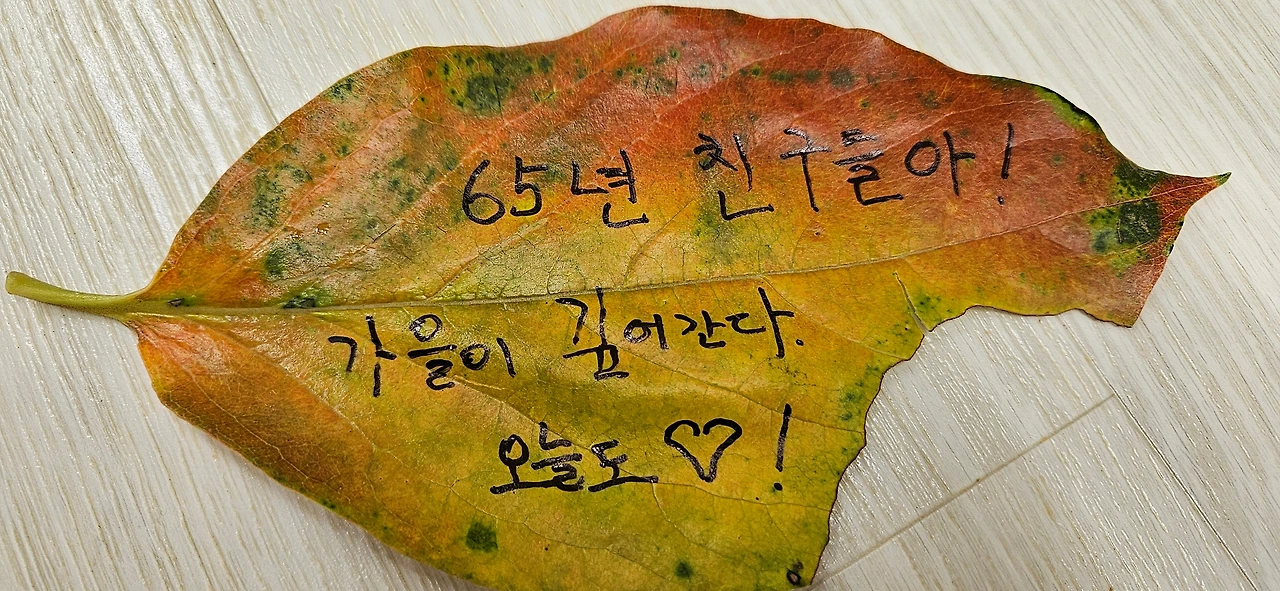 65년 친구들아!
가을이 깊어간다.
오늘도 ♡!